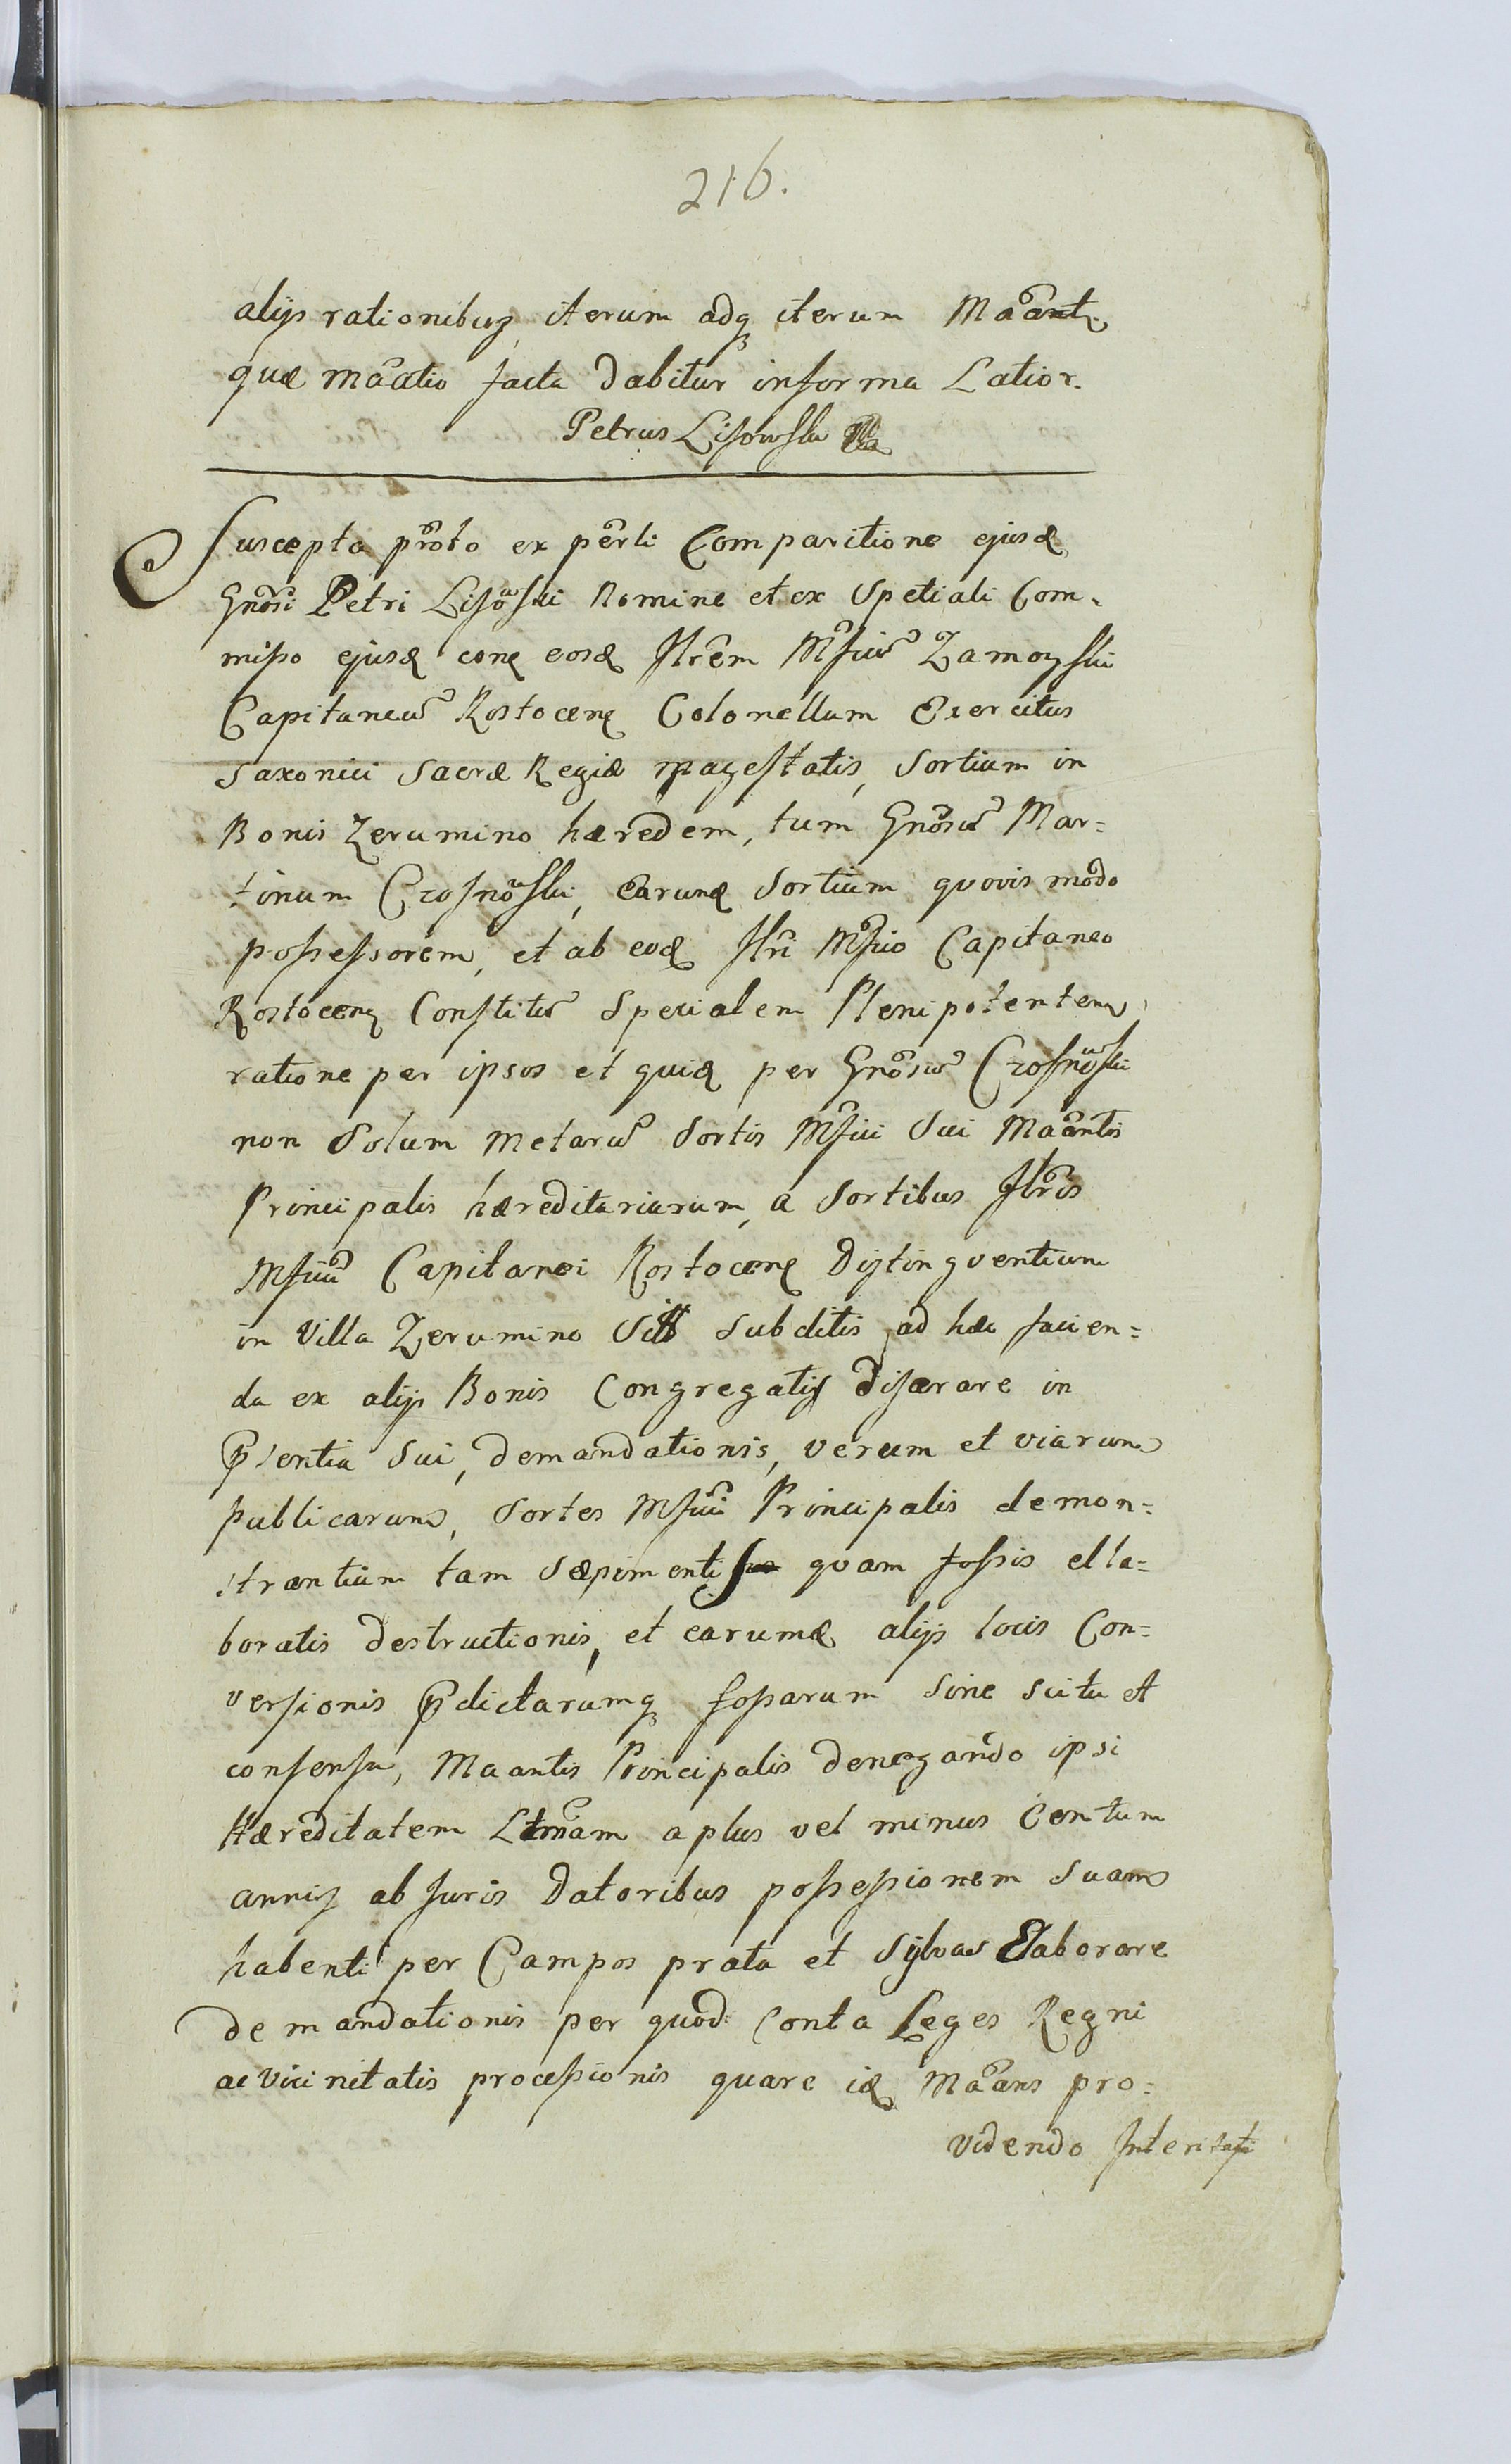 216.
alijs rationibus iterum adq iterum Maant.
quæ maatio facta dabitur in forma Latior.
Petrus Lisowski
Suscepta proto ex perli Comparitione ejusd
Gnosi Petri Lisowski Nomine et ex Spetiali Com-
misso ejusd con eosd Illrem Mficum Zamoyski
Capitaneum Rostocen Colonellum Exercitus
saxonici Sacræ Regiæ magestatis, Sortium in
Bonis Zerumino hæredem, tum Gnosum Mar=
tinum Crosnowski, earund Sortium quovis modo
possessorem, et ab eod Illri Mfico Capitaneo
Rostocen Constitum Specialem Plenipotentem
ratione per ipsos et quid per Gnosum Crosnowski
non Solum metarum Sortis Mfici Sui Maantis
Principalis hæreditariarum, a Sortibus Illris
Mfici Capitanei Rostocen Distingventium
in Villa Zerumino Subditis ad hæc facien=
da ex alijs Bonis Congregatis disærare in
psentia Sui, demandationis, verum et viarum
publicarum, Sortes Mfici Principalis demon=
strantium tam Sæpimentis quam fossis ella=
boratis destructionis, et earumd alijs locis Con=
versionis pdictarumq fossarum Sine scitu et
consensu, Maantis Principalis denegando ipsi
Hæreditatem Ltmam a plus vel minus Centum
annis ab Juris Datoribus possessionem Suam
habenti per Campos prata et Sylvas Elaborare
demandationis per quod Conta Leges Regni
ac Vicinitatis processionis quare id Maans pro=
videndo Interitati